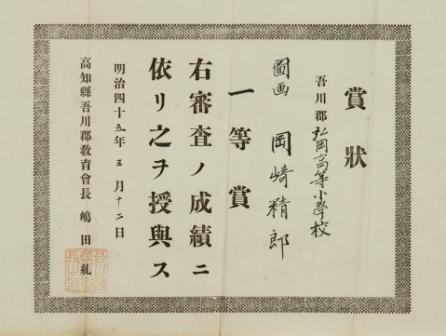 賞狀
吾川郡 弘岡高等小學校
圖画 岡崎精郎
一等賞
右審査ノ成績ニ
依リ之ヲ授與ス
明治四十五年三月十二日
高知縣吾川郡敎育會長 嶋田